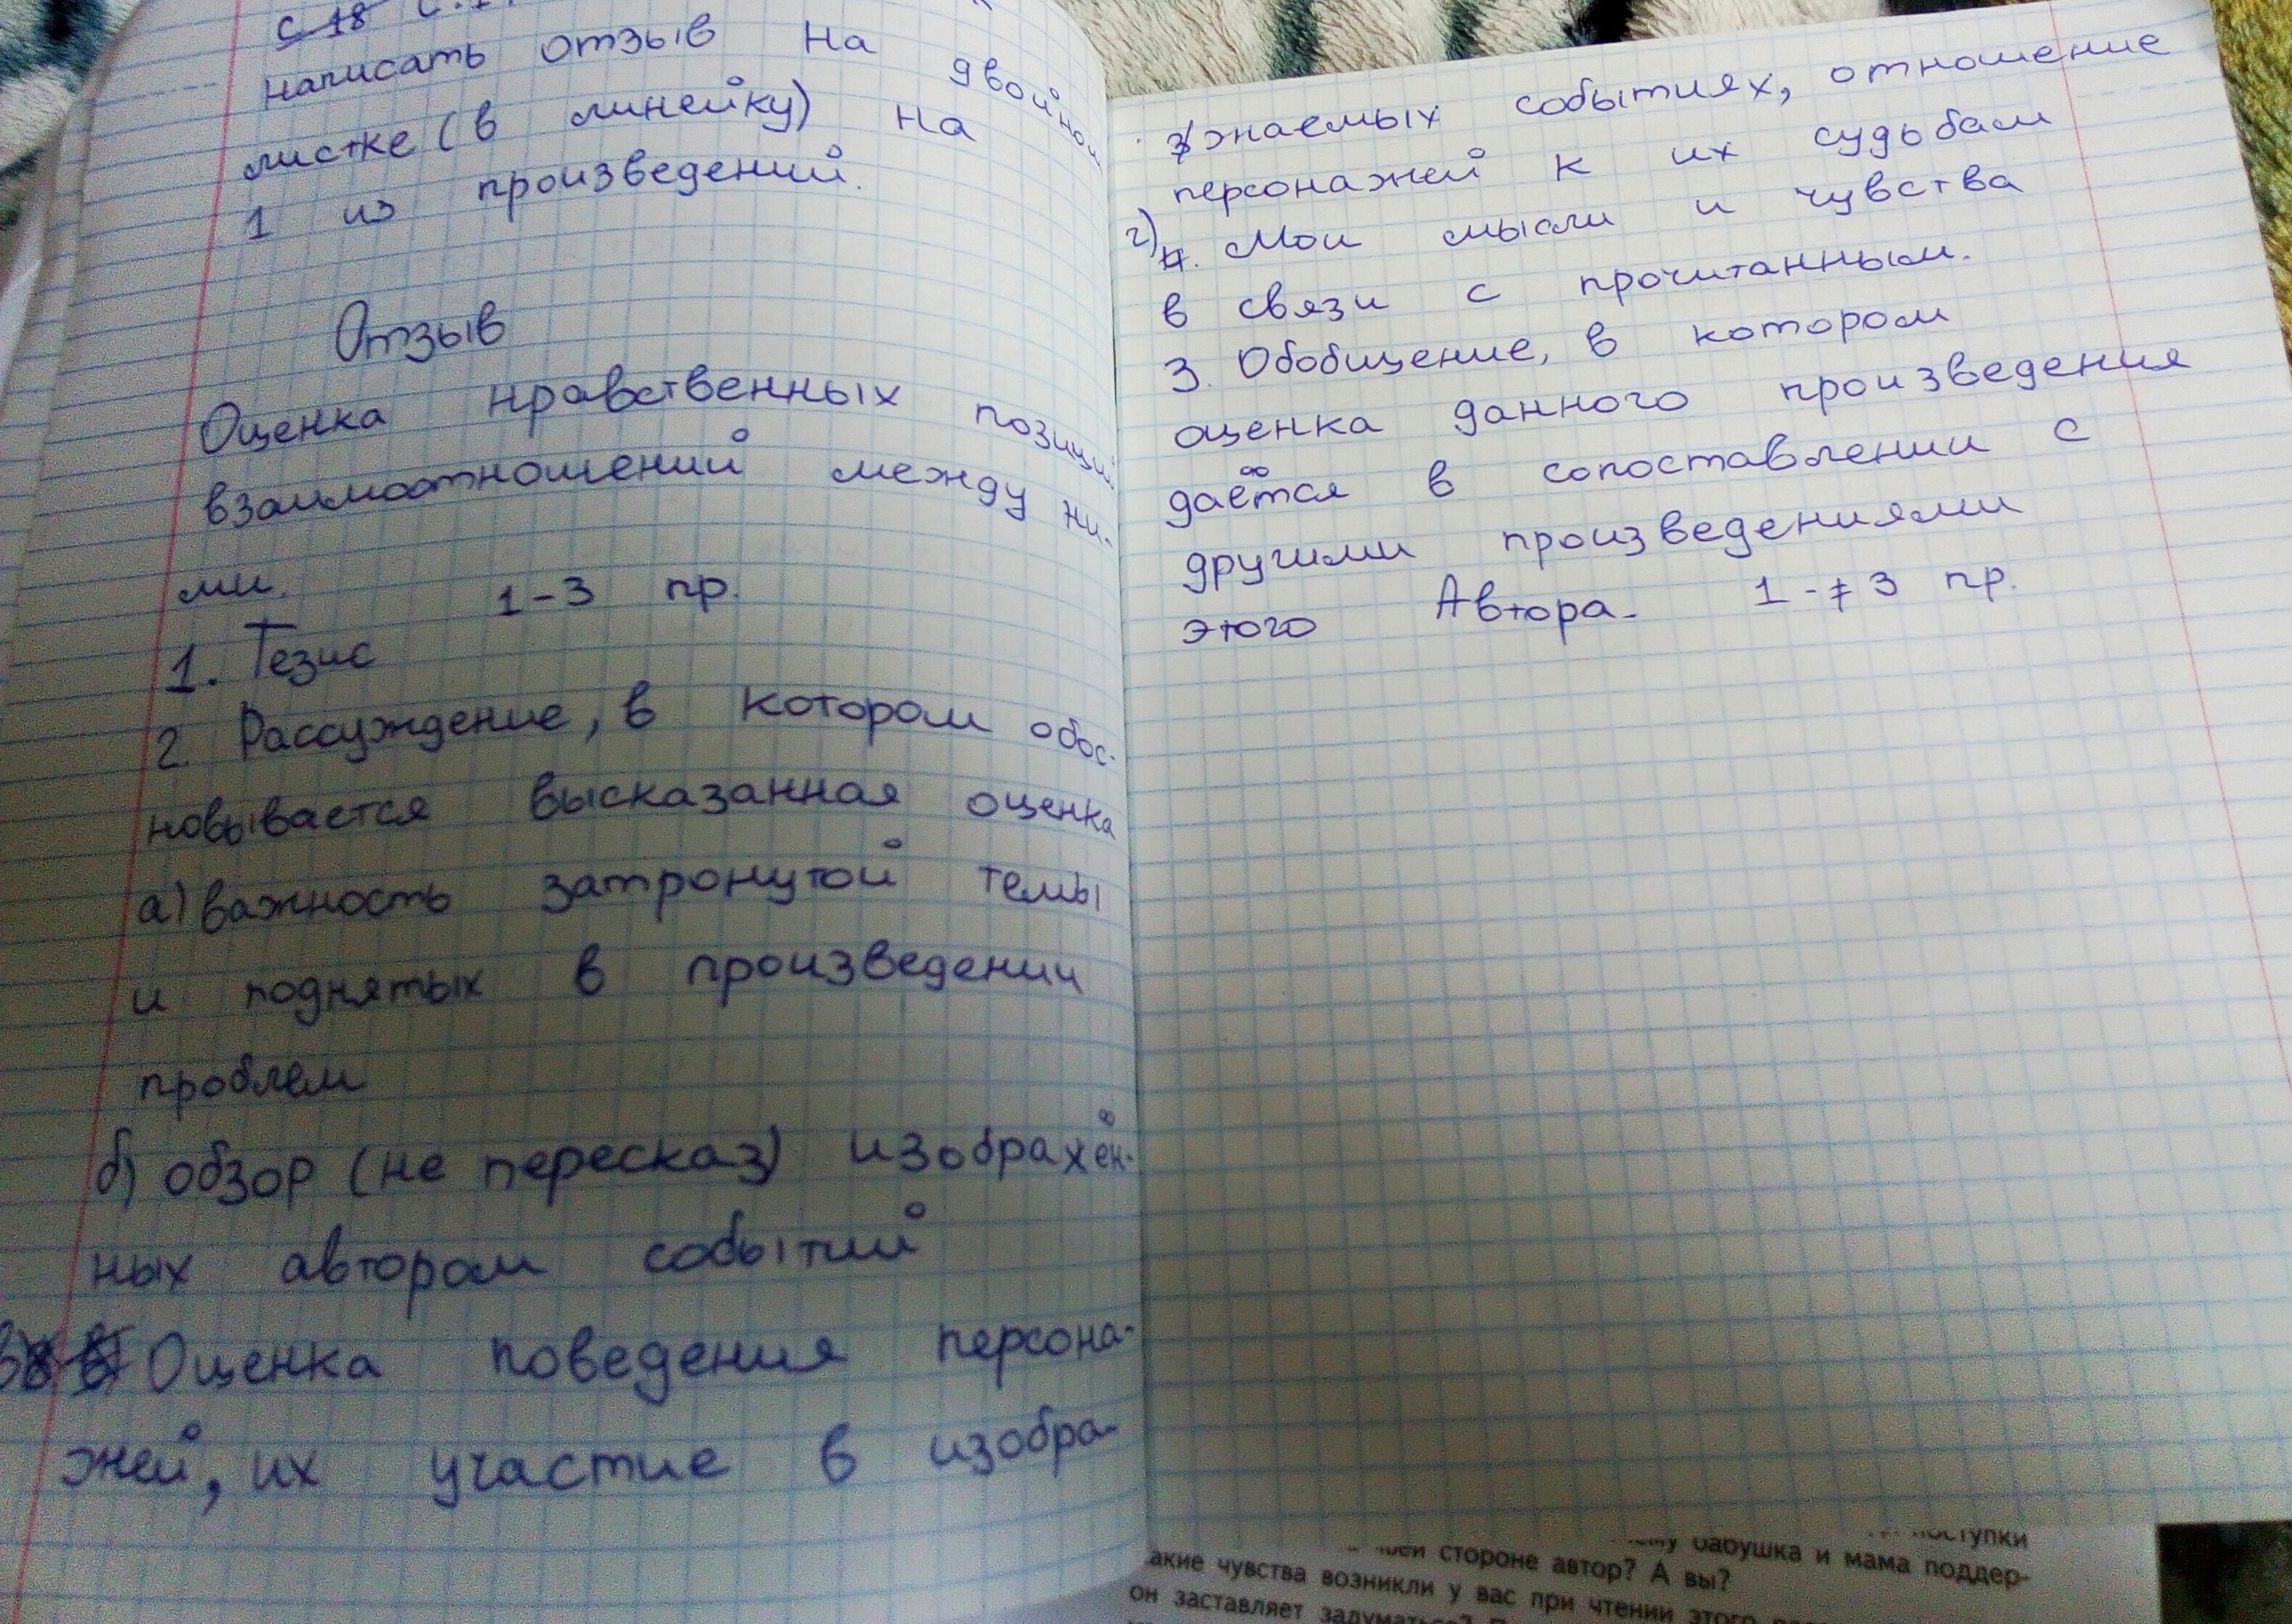 с 18 с.
написать отзыв на двойном
листке (в линейку) на
1 из произведений.
Отзыв
Оценка нравственных позиций
взаимоотношений между ни-
ми.
1-3 пр.
1. Тезис
2. Рассуждение, в котором обос-
новывается высказанная оценка
а) важность затронутой темы
и поднятых в произведении
проблем
б) обзор (не пересказ) изображён-
ных автором событий
в) Оценка поведения персона-
жей, их участие в изобра-
жаемых событиях, отношение
персонажей к их судьбам
г) 4. Мои мысли и чувства
в связи с прочитанным.
3. Обобщение, в котором
оценка данного произведения
даётся в сопоставлении с
другими произведениями
этого Автора. 1-3 пр.
бабушка и мама поддер-
стороне автор? А вы?
акие чувства возникли у вас при чтении этого
он заставляет задуматься?